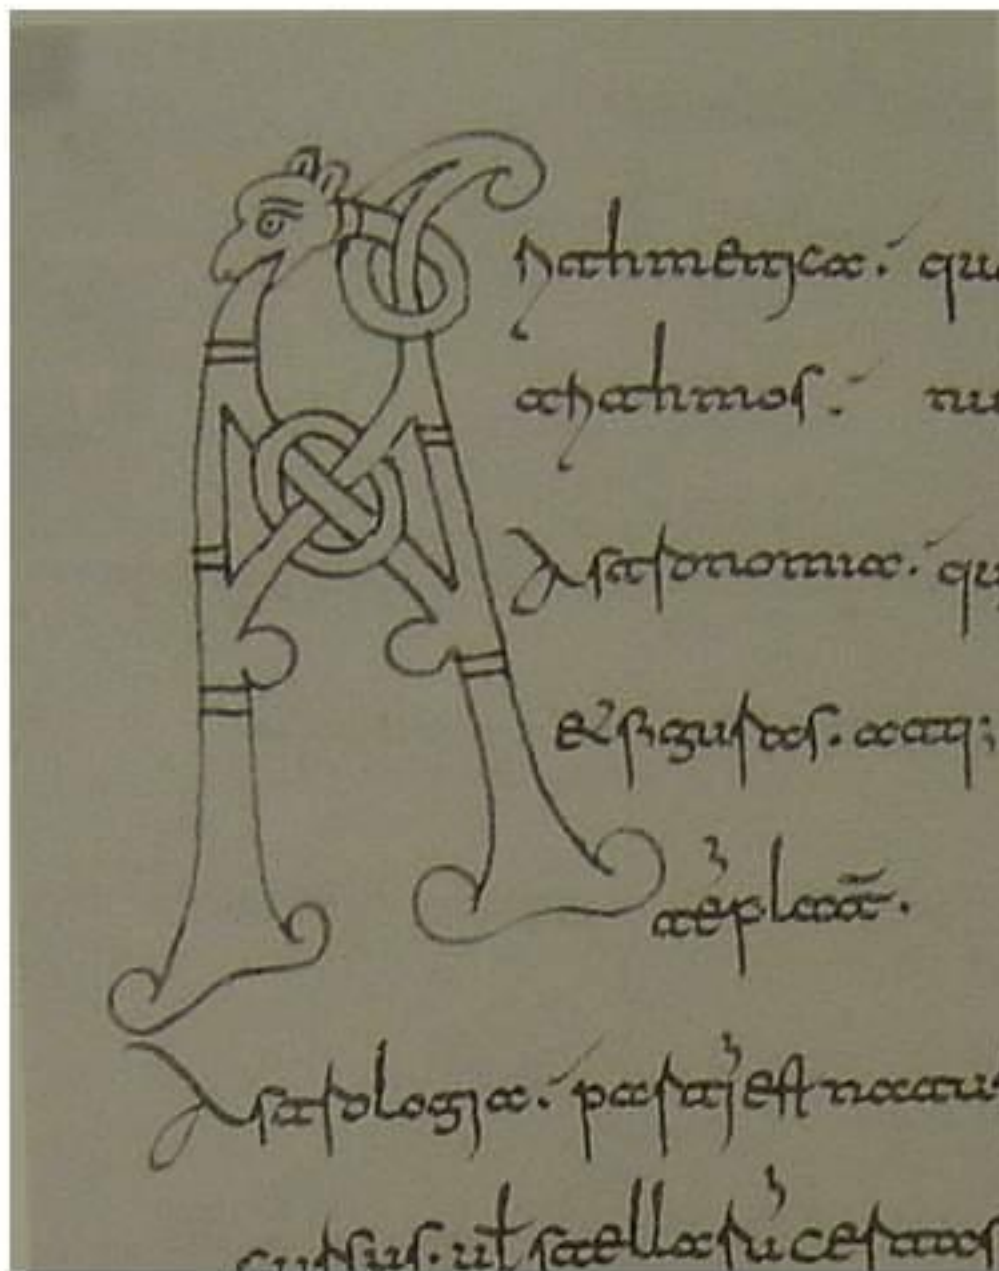 Arithmetica. qu
arithmos. nu
Astronomia. qu
et figuras. atq;
Astrologia. partī est natu
cursus. uł stellarū certas